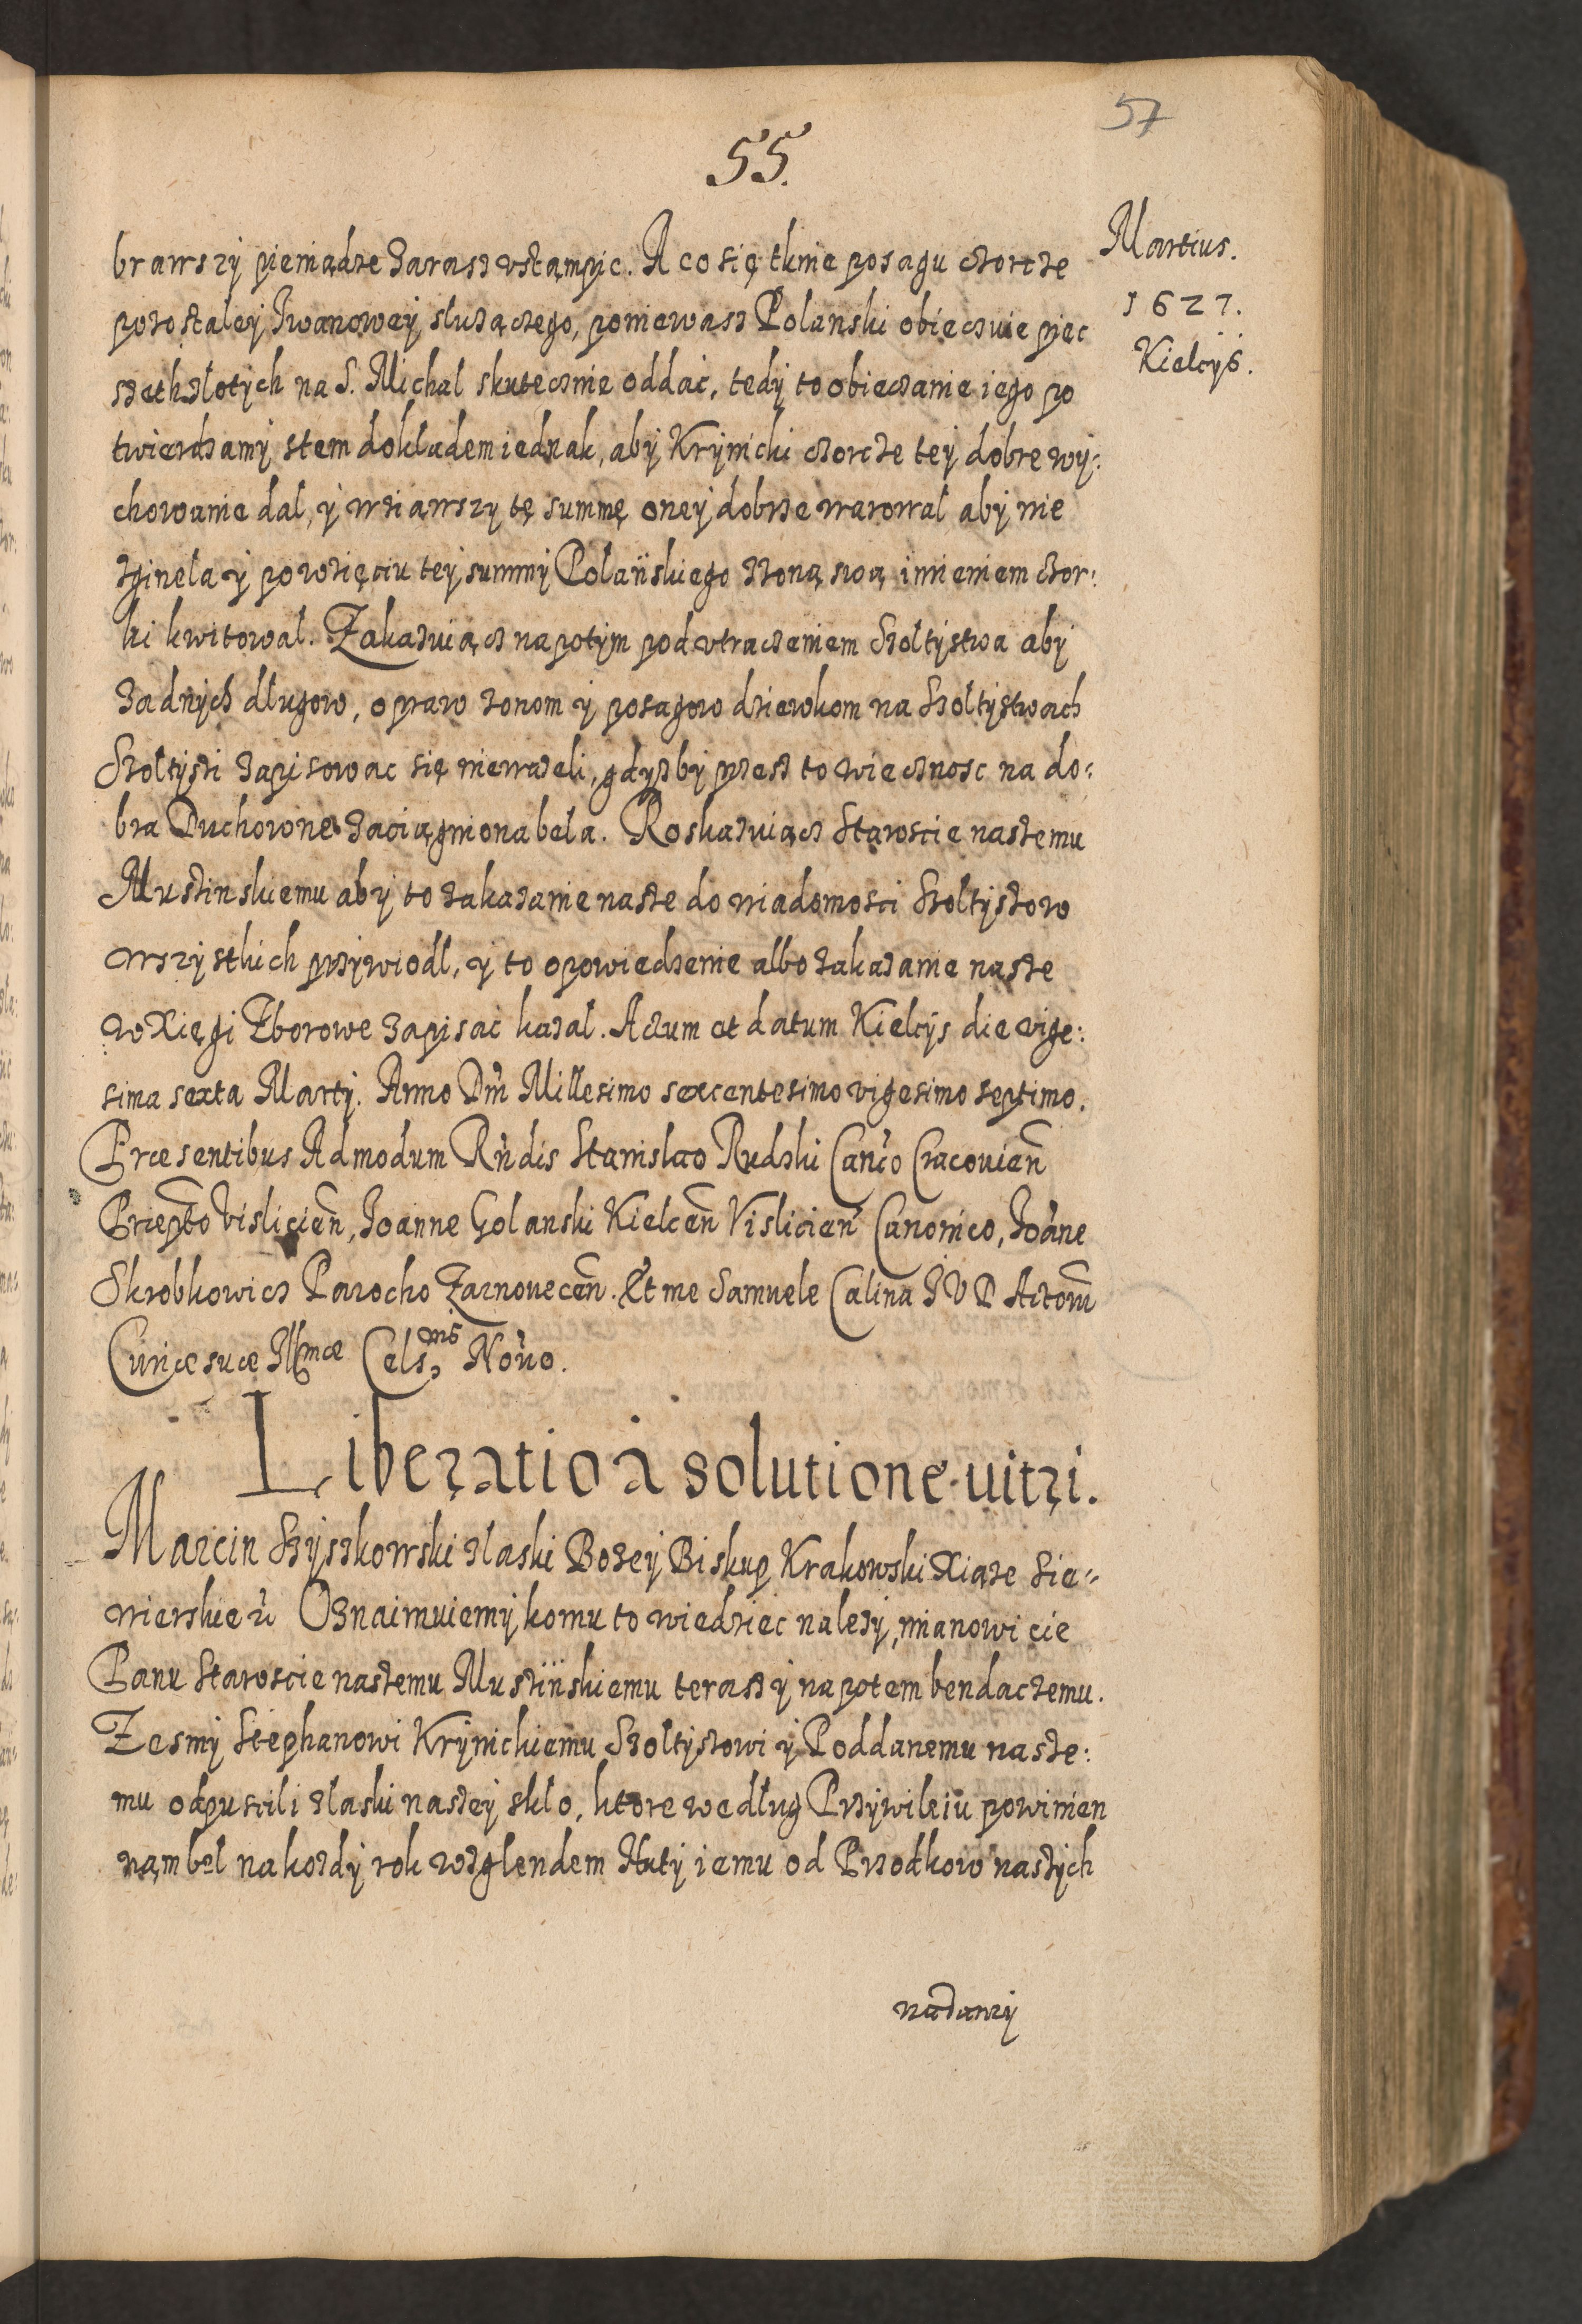 57
55.
Martius.
1627.
Kielcys.
brawszy pieniądze zarasz vstąmpic. A co się tknie posagu czorcze
pozostałey Iwanowey służączego, poniewasz Polanski obieczuie pięc
szeth złotych na S. Michal skutecznie oddać, tedy to obieczanie iego po
twierdzamy stem dokładem iednak, aby Krynicki czorcze tey dobre wy:
chowanie dal, y wziąwszy tę summę oney dobrze warował aby nie
zginela y po wzięciu tey summy Polańskiego zżoną swą imieniem czor:
ki kwitował. Zakazuiącz napotym pod vtraczeniem Szołtystwa aby
żadnych długow, opraw żonom y posagow dziewkom na Szołtystwach
Szołtyszi zapisowac się nieważeli, gdyżby przesz to wiecznosc na do:
bra Duchowne zaciągniona beła. Roskazuiącz Staroscie naszemu
Muszinskiemu aby to zakazanie nasze do wiadomosci Szołtyszow
wszystkich przywiodl, y to opowiedzenie albo zakazanie nasze
w Xięgi Zborowe zapisać kazal. Actum et datum Kielcys die vige:
sima sexta Marty. Anno Dni Millesimo sexcentesimo vigesimo septimo.
Præsentibus Admodum Rndis Stanislao Rudzki Canco Cracouien
Præpto Vislicien, Joanne Golanski Kielcen Vislicien Canonico, Joane
Skrobkowicz Parocho Zarnouecen. Et me Samuele Calina JVD Actorum
Curiæ suæ Illmæ Cels nis Norio.
Liberatio à solutione vitri.
Marcin Szyszkowski złaski Bożey Biskup Krakowski Xiąże Sie-
wierskie rc Oznaimuiemy komu to wiedziec należy, mianowicie
Panu Staroscie naszemu Muszińskiemu terasz y napotem bendaczemu.
Zesmy Stephanowi Krynickiemu Szołtyszowi y Poddanemu nasze:
mu odpuscili złaski naszey skło, ktore według Przywileiu powinien
nąm beł na kożdy rok względem Huty iemu od Przodkow naszych
nadaney